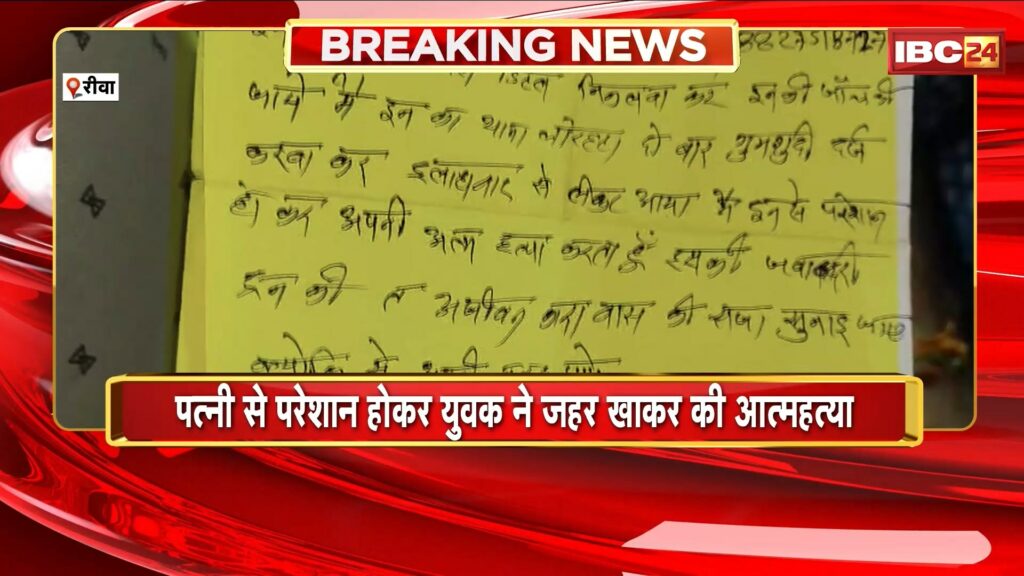 BREAKING NEWS
IBC24
रीवा
निकलवा कर इनकी जाँच की
जाये मै इन का थाना चोरहटा मे बार गुमशुदी दर्ज
करवा कर इलाहावाद से लेकर आया मै इन से परेशान
हो कर अपनी अत्म हत्या करता हूँ इसकी जवाबदारी
इन की त अजीवन कारावास की सजा सुनाइ जाए
पत्नी से परेशान होकर युवक ने जहर खाकर की आत्महत्या